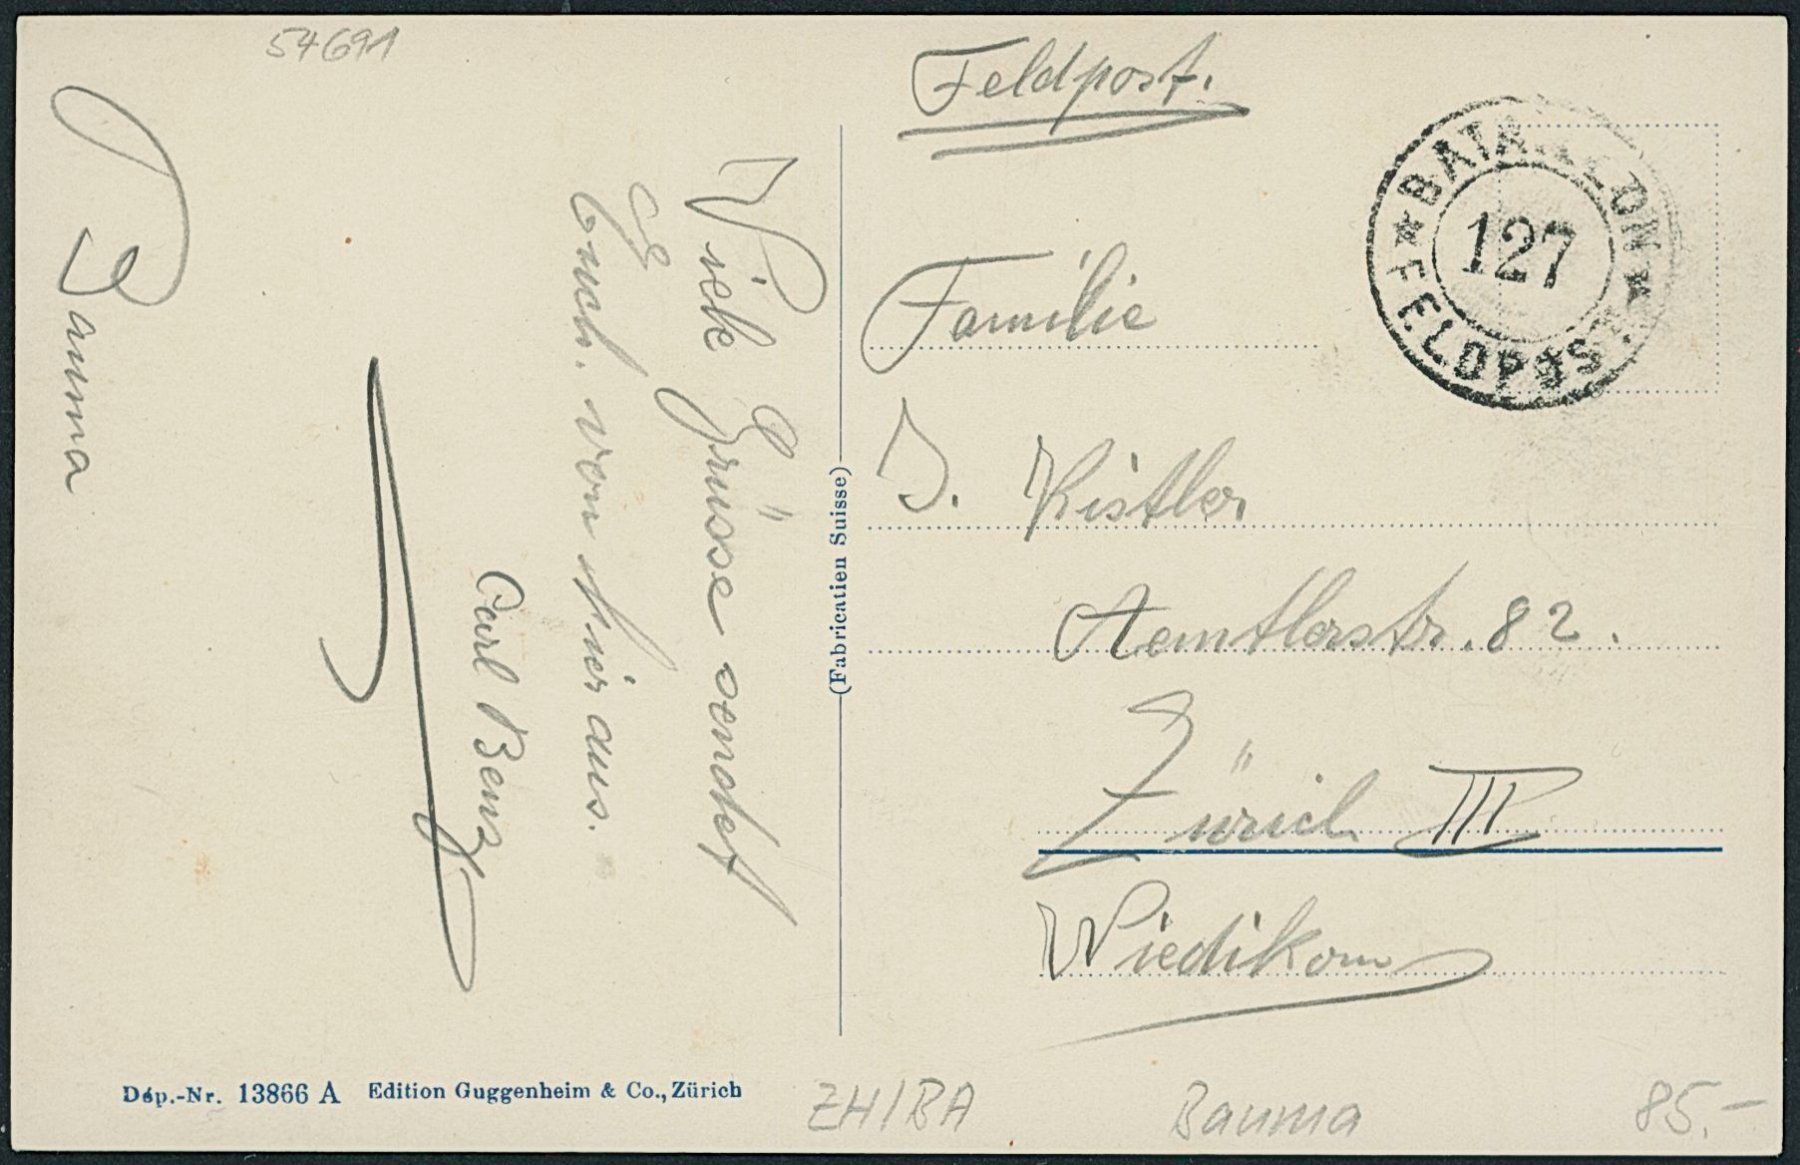 54691
Bauma
Viele Grüsse sendet
Euch. von hier aus.
Carl Benz
Feldpost.
★ BATAILLON ★
127
FELDPOST
Familie
J. Kistler
Aemtlerstr. 82.
Zürich III
Wiedikon
(Fabricatien Suisse)
Dép.-Nr. 13866 A Edition Guggenheim & Co., Zürich
ZH/BA
Bauma
85.–